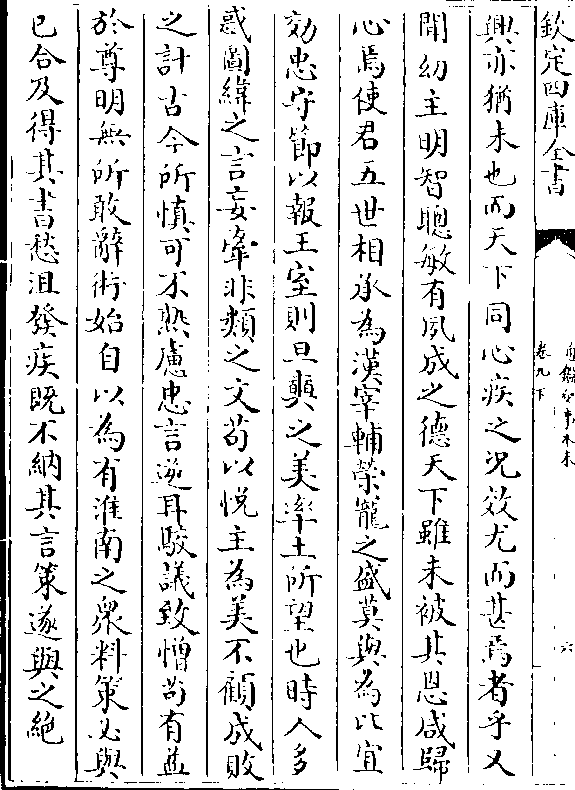 欽定四庫全書
通鑑紀事本末
卷九下
六
興亦猶未也而天下同心疾之况效尤而甚焉者乎又
聞幼主明智聰敏有夙成之德天下雖未被其恩咸歸
心焉使君五世相承為漢宰輔榮寵之盛莫與為比宜
効忠守節以報王室則旦奭之美率土所望也時人多
惑圖緯之言妄牽非類之文苟以悦主為美不顧成敗
之計古今所慎可不熟慮忠言逆耳駮議致憎苟有益
於尊明無所敢辭術始自以為有淮南之衆料策必與
已合及得其書愁沮發疾既不納其言策遂與之絶